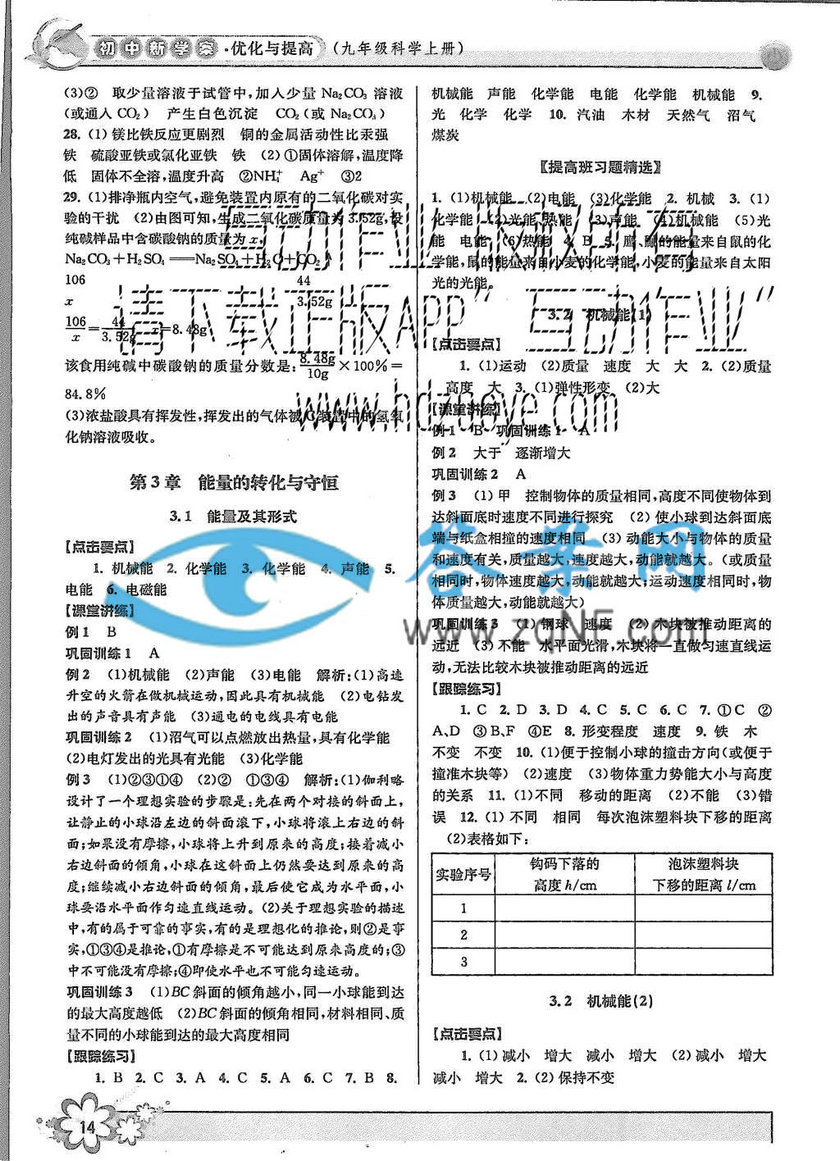 初中新学案·优化与提高 (九年级科学上册)
(3)② 取少量溶液于试管中,加入少量 Na₂CO₃ 溶液
(或通入 CO₂) 产生白色沉淀 CO₂(或 Na₂CO₃)
28. (1)镁比铁反应更剧烈 铜的金属活动性比汞强
铁 硫酸亚铁或氯化亚铁 铁 (2)①固体溶解,温度降
低 固体不全溶,温度升高 ②NH₄⁺ Ag⁺ ③2
29. (1)排净瓶内空气,避免装置内原有的二氧化碳对实
验的干扰 (2)由图可知,生成二氧化碳质量为 3.52g,设
纯碱样品中含碳酸钠的质量为 x,
Na₂CO₃+H₂SO₄══Na₂SO₄+H₂O+CO₂↑
106 44
x 3.52g
106/x=44/3.52g x=8.48g
该食用纯碱中碳酸钠的质量分数是:8.48g/10g×100%=
84.8%
(3)浓盐酸具有挥发性,挥发出的气体被C装置中的氢氧
化钠溶液吸收。
第 3 章 能量的转化与守恒
3.1 能量及其形式
【点击要点】
1. 机械能 2. 化学能 3. 化学能 4. 声能 5.
电能 6. 电磁能
【课堂讲练】
例 1 B
巩固训练 1 A
例 2 (1)机械能 (2)声能 (3)电能 解析:(1)高速
升空的火箭在做机械运动,因此具有机械能 (2)电钻发
出的声音具有声能 (3)通电的电线具有电能
巩固训练 2 (1)沼气可以点燃放出热量,具有化学能
(2)电灯发出的光具有光能 (3)化学能
例 3 (1)②③①④ (2)② ①③④ 解析:(1)伽利略
设计了一个理想实验的步骤是:先在两个对接的斜面上,
让静止的小球沿左边的斜面滚下,小球将滚上右边的斜
面;如果没有摩擦,小球将上升到原来的高度;接着减小
右边斜面的倾角,小球在这斜面上仍然要达到原来的高
度;继续减小右边斜面的倾角,最后使它成为水平面,小
球要沿水平面作匀速直线运动。(2)关于理想实验的描述
中,有的属于可靠的事实,有的是理想化的推论,则②是事
实,①③④是推论,①有摩擦是不可能达到原来高度的;③
中不可能没有摩擦;④即使水平也不可能匀速运动。
巩固训练 3 (1)BC 斜面的倾角越小,同一小球能到达
的最大高度越低 (2)BC 斜面的倾角相同,材料相同、质
量不同的小球能到达的最大高度相同
【跟踪练习】
1. B 2. C 3. A 4. C 5. A 6. C 7. B 8.
机械能 声能 化学能 电能 化学能 机械能 9.
光 化学 化学 10. 汽油 木材 天然气 沼气
煤炭
【提高班习题精选】
1. (1)机械能 (2)电能 (3)化学能 2. 机械 3. (1)
化学能 (2)光能 热能 (3)声能 (4)机械能 (5)光
能 电能 (6)热能 4. B 5. 鹰、鼬的能量来自鼠的化
学能,鼠的能量来自小麦的化学能,小麦的能量来自太阳
光的光能。
3.2 机械能(1)
【点击要点】
1. (1)运动 (2)质量 速度 大 大 2. (2)质量
高度 大 3. (1)弹性形变 (2)大
【课堂讲练】
例 1 B 巩固训练 1 A
例 2 大于 逐渐增大
巩固训练 2 A
例 3 (1)甲 控制物体的质量相同,高度不同使物体到
达斜面底时速度不同进行探究 (2)使小球到达斜面底
端与纸盒相撞的速度相同 (3)动能大小与物体的质量
和速度有关,质量越大,速度越大,动能就越大。(或质量
相同时,物体速度越大,动能就越大;运动速度相同时,物
体质量越大,动能就越大)
巩固训练 3 (1)钢球 速度 (2)木块被推动距离的
远近 (3)不能 水平面光滑,木块将一直做匀速直线运
动,无法比较木块被推动距离的远近
【跟踪练习】
1. C 2. D 3. D 4. C 5. C 6. C 7. ①C ②
A、D ③B、F ④E 8. 形变程度 速度 9. 铁 木
不变 不变 10. (1)便于控制小球的撞击方向(或便于
撞准木块等) (2)速度 (3)物体重力势能大小与高度
的关系 11. (1)不同 移动的距离 (2)不能 (3)错
误 12. (1)不同 相同 每次泡沫塑料块下移的距离
(2)表格如下:
实验序号 钩码下落的高度 h/cm 泡沫塑料块下移的距离 l/cm
1
2
3
3.2 机械能(2)
【点击要点】
1. (1)减小 增大 减小 增大 (2)减小 增大
减小 增大 2. (2)保持不变
14
互动作业 版权所有
请下载正版APP“互动作业”
www.hdzuoye.com
答案网
www.zqNF.com